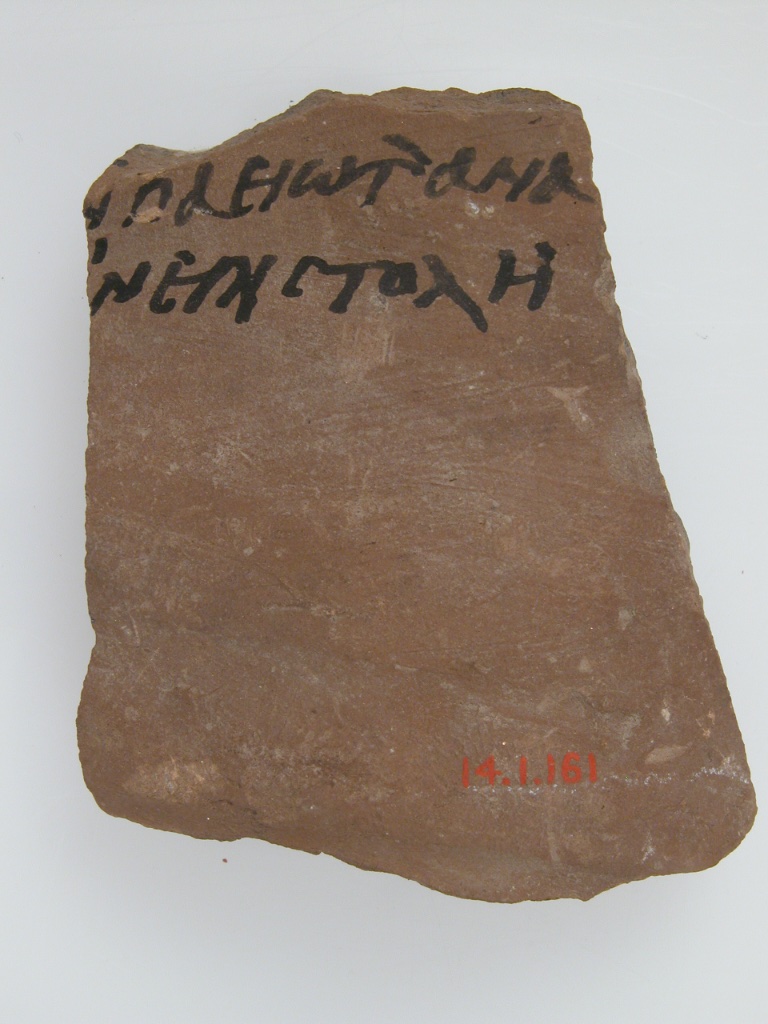 ⲙⲡⲁⲉⲓⲱⲧ ⲁⲡⲁ
ⲛⲉⲡⲓⲥⲧⲟⲗⲏ
14.1.161